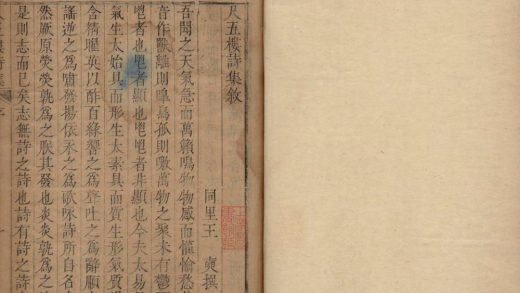 尺五樓詩集敘
同里王 撰
吾聞之天氣急而萬籟鳴物感而懽愉愁
音作獸離則嘷鳥孤則噭萬物之聚未有鬱
鬯者也鬯者顯也鬯鬯者非顯也今夫太易
氣生太始具而形生太素具而質生形氣質
含精曜英以酢百緣響之爲聲吐之爲辭順
謡逆之爲嘯發揚依永之爲歌咏詩所自名
然厥原熒熒孰爲之朕其發也炎炎孰爲之
是則志而已矣志無詩之詩也詩有詩之